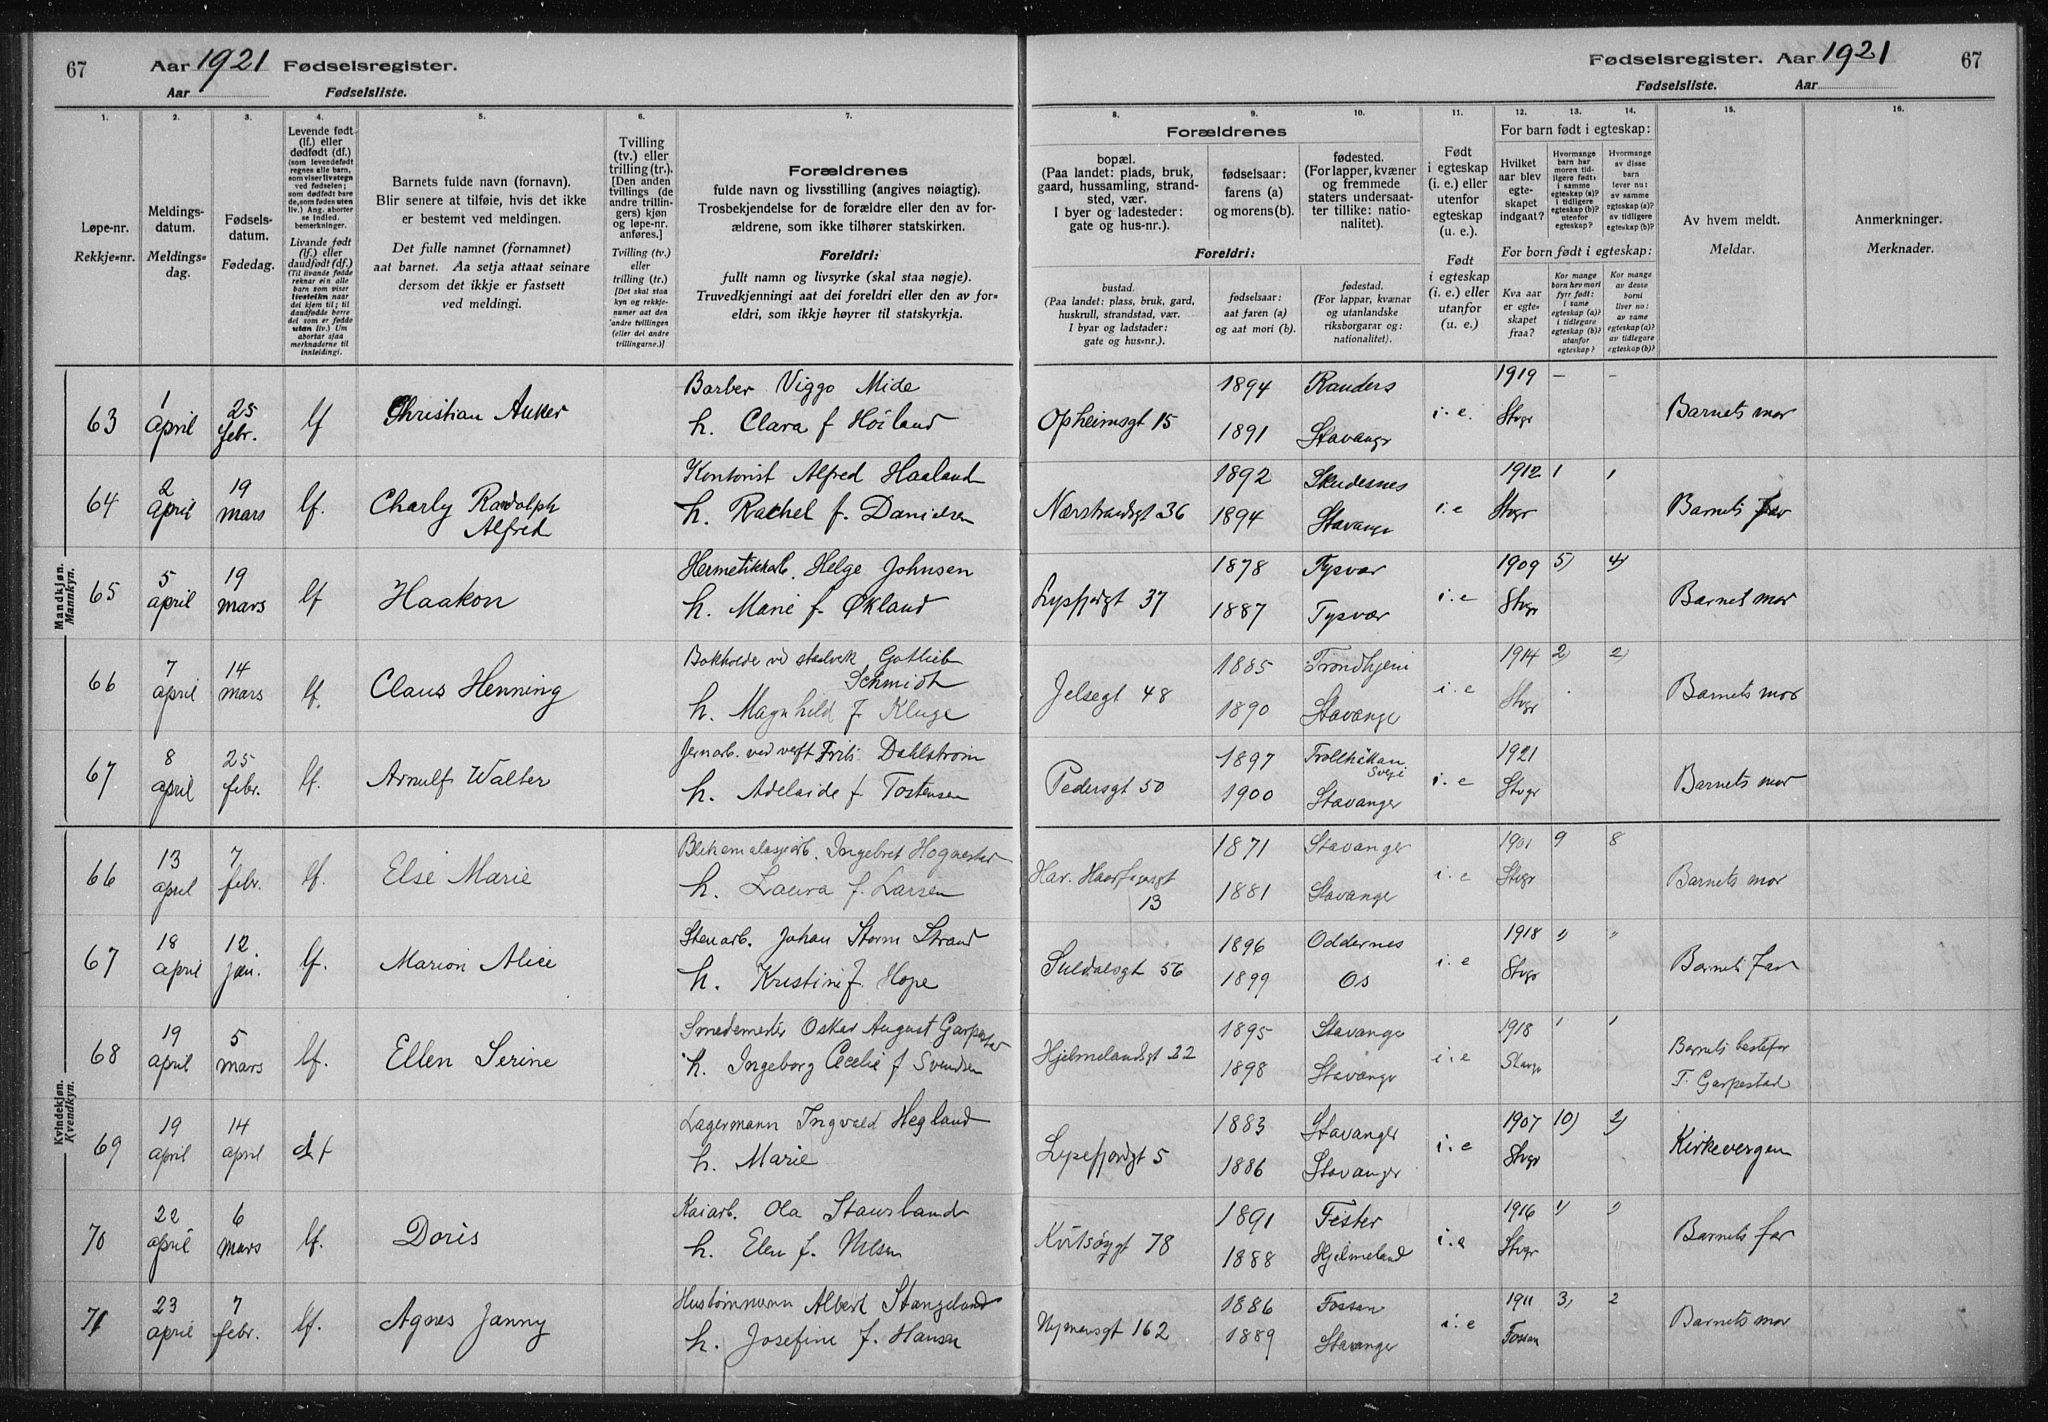 67 Aar 1921 Fødselsregister.
Aar Fødselsliste.
Fødselsregister. Aar 1921 67
Fødselsliste. Aar
1. 2. 3. 4. 5. 6. 7. 8. 9. 10. 11. 12. 13. 14. 15. 16.
Løpe-nr.
Rekkje-nr.
Meldings-
datum.
Meldings-
dag.
Fødsels-
datum.
Fødedag.
Levende født
(lf.) eller
dødfødt (df.)
(som levendefødt
regnes alle barn,
som viser livstegn
ved fødselen;
som dødfødt bare
de, som føden uten
liv.) Ang. aborter
se indled.
bemerkninger.
Livande født
(lf.) eller
daudfødt (df.)
(Til livande fødde
reknar ein alle
barn som viser
livsteikn naar
dei kjem til; til
daudfødde berre
dei som er fødde
utan liv.) Um
abortar sjaa
merknaderne til
innleidingi.
Barnets fulde navn (fornavn).
Blir senere at tilføie, hvis det ikke
er bestemt ved meldingen.
Det fulle namnet (fornamnet)
aat barnet. Aa setja attaat seinare
dersom det ikkje er fastsett
ved meldingi.
Tvilling
(tv.) eller
trilling (tr.).
[Den anden
tvillings (de
andre trillin-
gers) kjøn
og løpe-nr.
anføres.]
Tvilling (tv.)
eller
trilling (tr.)
[Det skal staa
kyn og rekkje-
numer aat den
andre tvillingen
(eller dei andre
trillingarne.)]
Forældrenes
fulde navn og livsstilling (angives nøiagtig).
Trosbekjendelse for de forældre eller den av for-
ældrene, som ikke tilhører statskirken.
Foreldri:
fullt namn og livsyrke (skal staa nøgje).
Truvedkjenningi aat dei foreldri eller den av for-
eldri, som ikkje høyrer til statskyrkja.
Forældrenes
bopæl.
(Paa landet: plads, bruk,
gaard, hussamling, strand-
sted, vær.
I byer og ladesteder:
gate og hus-nr.).
fødselsaar:
farens (a)
og morens (b).
fødested.
(For lapper, kvæner
og fremmede
staters undersaat-
ter tillike: natio-
nalitet).
Foreldri:
bustad.
(Paa landet: plass, bruk, gard,
huskrull, strandstad, vær.
I byar og ladstader:
gate og hus-nr.).
fødselsaar:
aat faren (a)
og aat mori (b).
fødestad.
(For lappar, kvænar
og utanlandske
riksborgarar og:
nationalitet).
Født
i egteskap
(i. e.) eller
utenfor
egteskap
(u. e.).
Født
i egteskap
(i. e.) eller
utanfor
(u. e.).
For barn født i egteskap:
Hvilket
aar blev
egte-
skapet
indgaat?
Hvormange
barn har
moren tid-
ligere født:
i samme
egteskap (a)?
i tidligere
egteskap (b)?
utenfor
egteskap?
Hvormange
av disse
barn
lever nu:
av samme
egteskap (a)?
av tidligere
egteskap (b)?
For born født i egteskap:
Kva aar
er egte-
skapet
fraa?
Kor mange
born hev mori
fyrr født:
i same
egteskap (a)?
i tidlegare
egteskap (b)?
utanfor
egteskap?
Kor mange
av desse
borni
liver no:
av same
egteskap (a)?
av tidlegare
egteskap (b)?
Av hvem meldt.
Meldar.
Anmerkninger.
Merknader.
Mandkjøn.
Mannkyn.
63 1 april 25 febr. lf Christian Anker Barber Viggo Mide
h. Clara f Höiland
Opheimsgt 15 1894 Randers i. e. 1919 – – Barnets mor
1891 Stavangr Stvgr
64 2 april 19 mars lf. Charly Randolph
Alfred
Kontorist Alfred Haaland
h. Rachel f. Danielsen
Nærstrandsgt 36 1892 Skudesnes i. e 1912 1 1 Barnets far
1894 Stavange Stvgr
65 5 april 19 mars lf Haakon Hermetikkarb. Helge Johnsen
h. Marie f. Økland
Lysefjordgt 37 1878 Tysvær i. e 1909 5) 4) Barnets mor
1887 Tysvær Stvgr
66 7 april 14 mars lf. Claus Henning Bokholde ved staalverk Gotlieb
Schmidt
h. Magnhild f Kluge
Jelsegt 48 1885 Trondhjem i. e 1914 2) 2) Barnets mor
1890 Stavange Stvgr
67 8 april 25 febr. lf. Arnulf Walter Jernarb. ved verft Frits Dahlstrøm
h. Adelaide f. Tostensen
Pedersgt 50 1897 Trollhättan
Sverje i. e 1921 Barnets mor
1900 Stavanger Stvgr
Kvindekjøn.
Kvendkyn.
66 13 april 7 febr. lf. Else Marie Ingebret Hognestad
h. Laura f. Larsen
Har. Haarfagersgt
13 1871 Stavanger i. e 1901 9 8 Barnets mor
1881 Stavange Stvgr
67 18 april 12 jan. lf. Marion Alice Stenarb. Johan Storm Strand
h. Kristine f. Hope
Suldalsgt 56 1896 Oddernes i. e 1918 Barnets far
1899 Os Stvgr
68 19 april 5 mars lf. Ellen Serine Smedemester Oskar August Garpestad
h. Ingeborg Cecelie f Svendsen
Hjelmelandsgt 22 1895 Stavange i. e 1918 1 1 Barnets bestefar
1898 Stavange Stavgr T. Garpestad
69 19 april 14 april df Lagermann Ingvald Hegland
h. Marie
Lysefjordgt 5 1883 Stavanger i. e 1907 10) 2) Kirkevergen
1886 Stavanger Stvgr
70 22 april 6 mars lf. Doris Kaiarb. Ola Staursland
h. Elen f. Nilsen
Kvitsøygt 78 1891 Fister i. e 1916 1) Barnets far
1888 Hjelmeland Stvgr
71 23 april 7 febr. lf. Agnes Janny Hustømmerm Albert Stangeland
h. Josefine f. Hansen
Nymansgt 162 1886 Fossan i. e 1911 3) 2 Barnets mor
1889 Stavanger Fossan